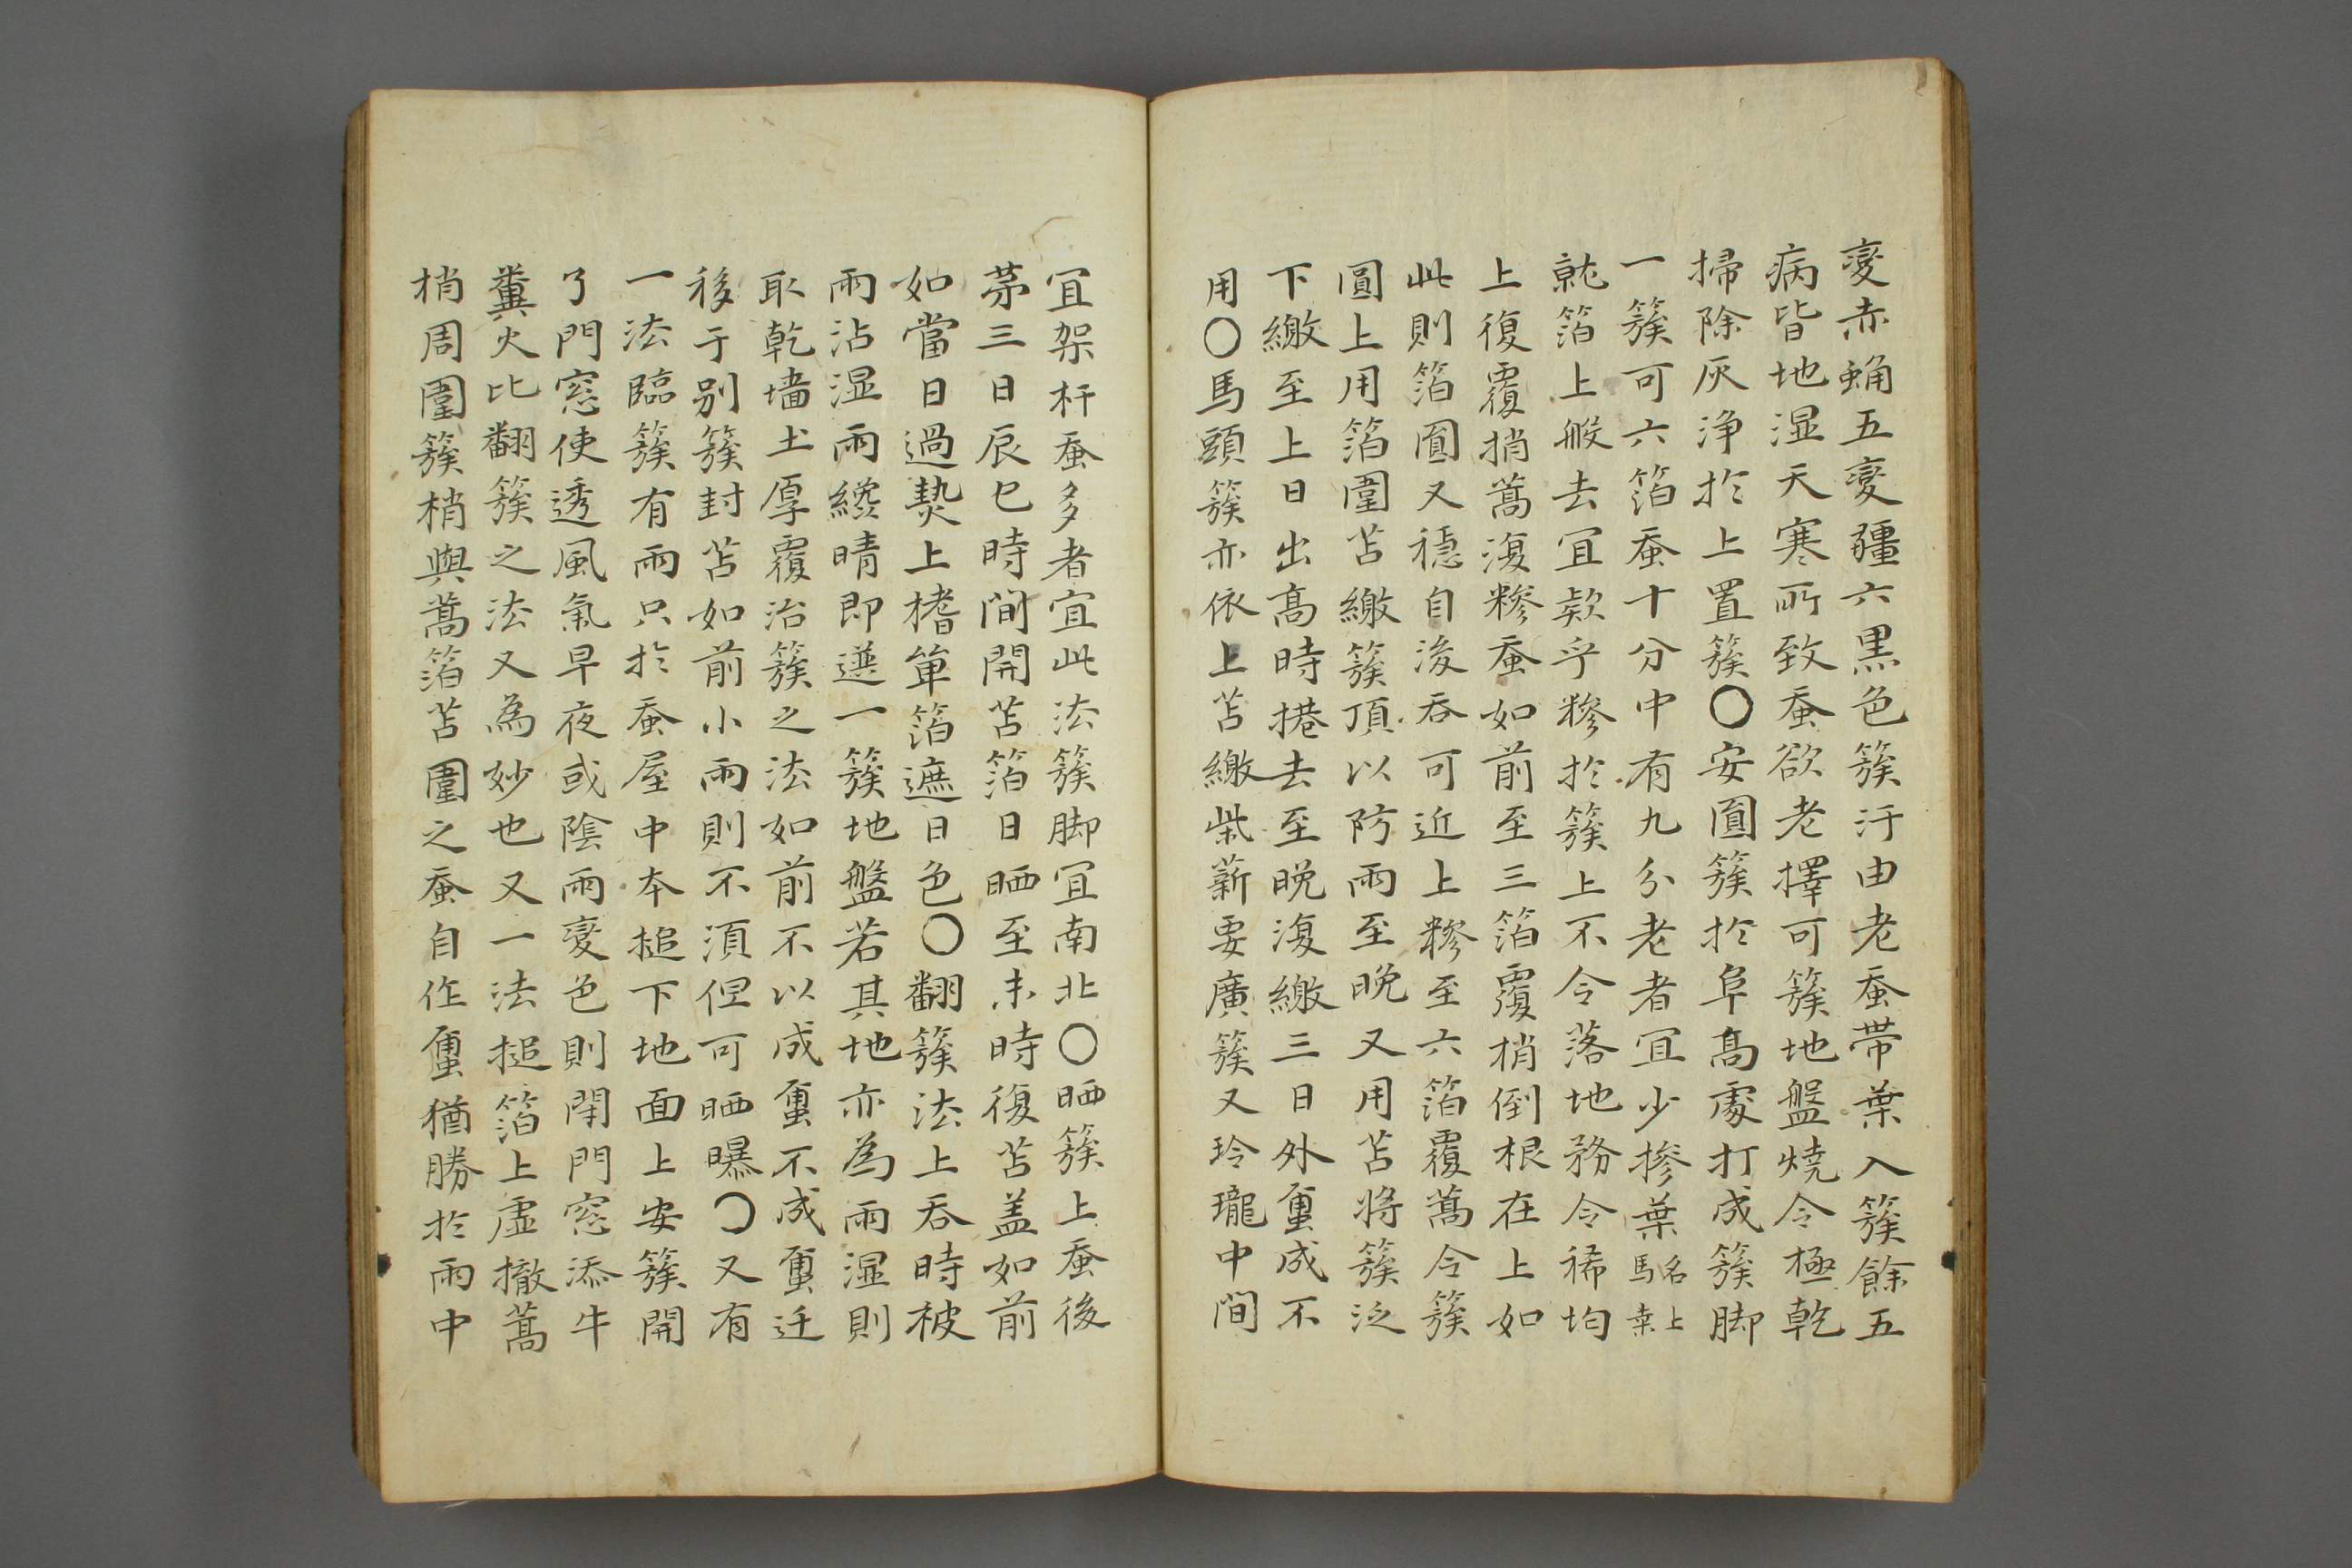 變赤蛹五變殭六黒色簇汙由老蚕帯葉入簇餘五
病皆地湿天寒所致蚕欲老擇可簇地盤燒令極乾
掃除灰浄於上置簇〇安圓簇於阜髙處打成簇脚
一簇可六箔蚕十分中有九分老者冝少摻葉名上馬桒
就箔上般去冝欵乎糝於簇上不令落地務令稀均
上復覆捎蒿復糝蚕如前至三箔覆梢倒根在上如
此則箔圓又穏自後吞可近上糝至六箔覆蒿令簇
圓上用箔圍苫繳簇頂以防雨至晩又用苫将簇泛
下繳至上日出髙時捲去至晩復繳三日外蠒成不
用〇馬頭簇亦依上苫繳柴薪要廣簇又玲瓏中間
冝架杆蚕多者宜此法簇脚冝南北〇晒簇上蚕後
苐三日辰巳時間開苫箔日晒至未時復苫盖如前
如當日過𤍠上榰箄箔遮日色〇翻簇法上吞時被
雨沾湿雨纔晴即選一簇地盤若其地亦為雨湿則
取乾墻土厚覆治簇之法如前不以成蠒不成蠒迁
移于别簇封苫如前小雨則不湏但可晒曝〇又有
一法臨簇有雨只於蚕屋中本搥下地面上安簇開
了門窓使透風氣早夜或陰雨變色則閉門窓添牛
糞火比翻簇之法又為妙也又一法搥箔上虚撤蒿
梢周圍簇梢與蒿箔苫圍之蚕自作蠒猶勝於雨中